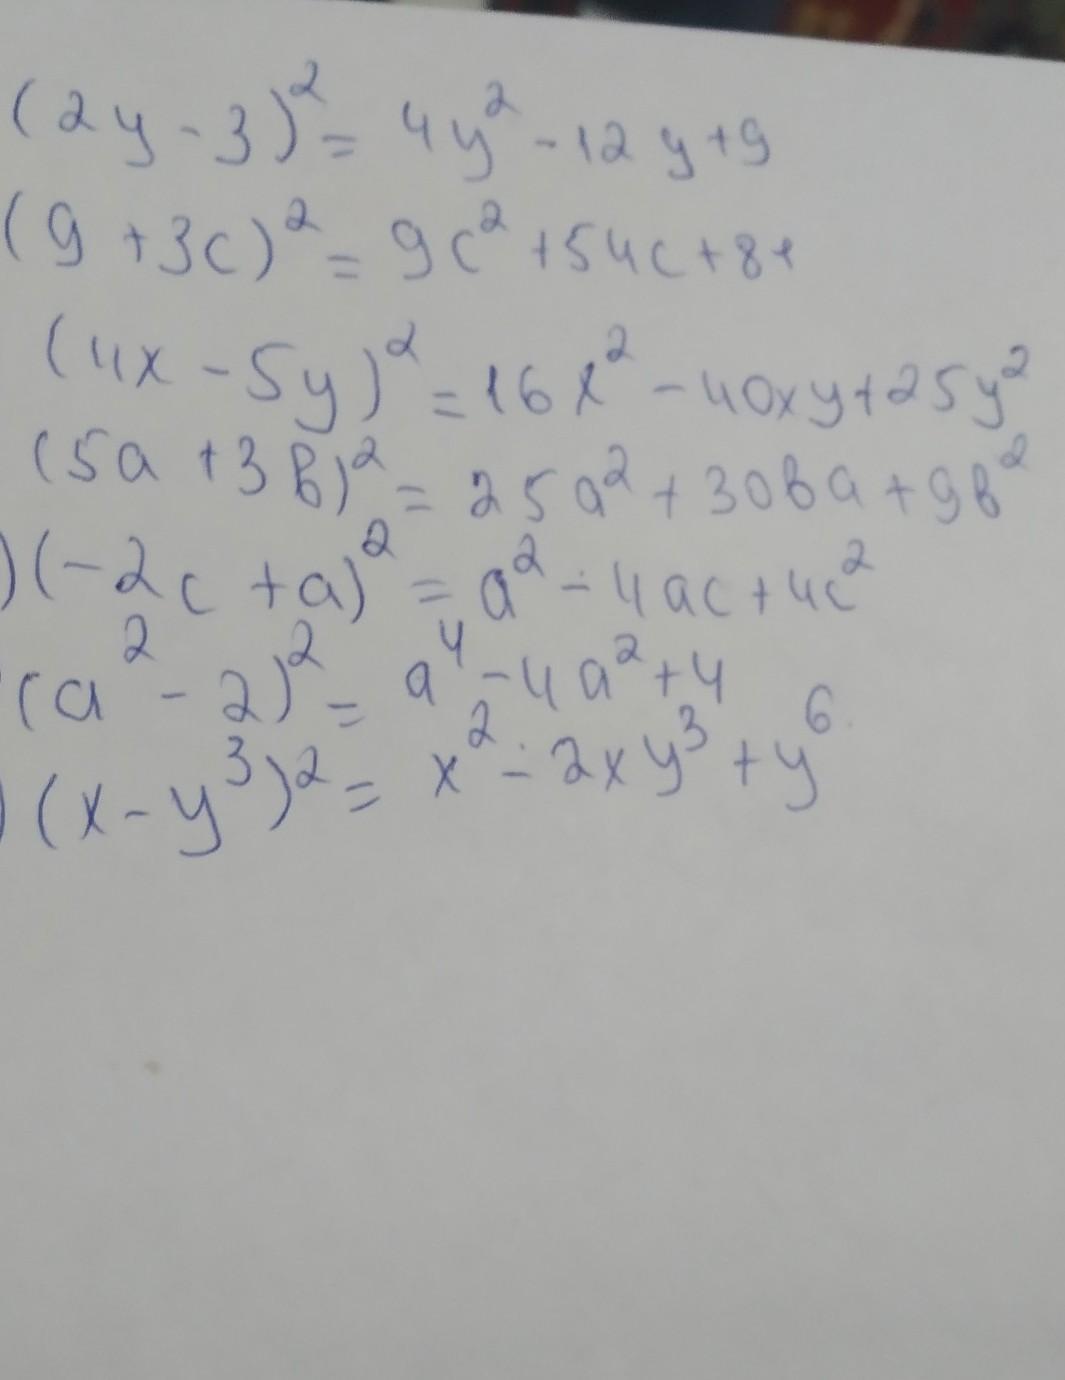 (2y - 3)² = 4y² - 12y + 9
(9 + 3c)² = 9c² + 54c + 81
(4x - 5y)² = 16x² - 40xy + 25y²
(5a + 3b)² = 25a² + 30ba + 9b²
)(-2c + a)² = a² - 4ac + 4c²
(a² - 2)² = a⁴ - 4a² + 4
)(x - y³)² = x² - 2xy³ + y⁶